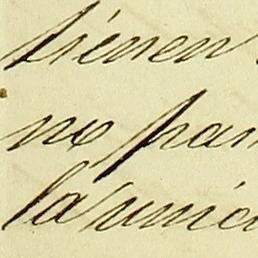 tienen
no pan
la unic